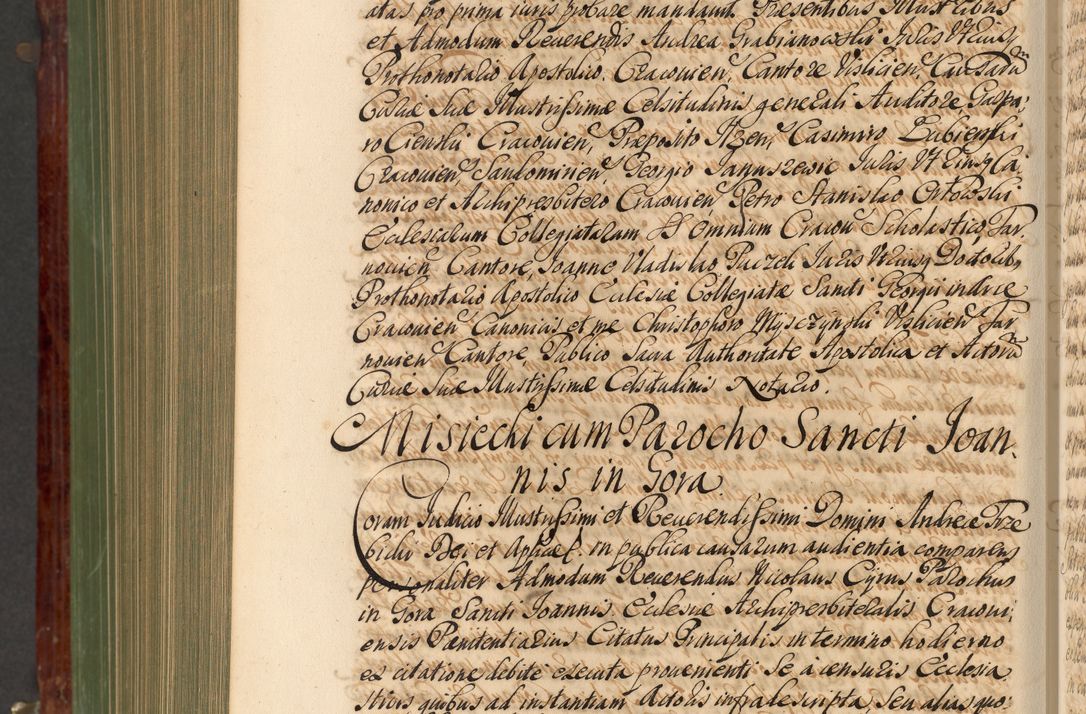 atas pro prima iuris probare mandavit. Præsentibus Illustribus
et Admodum Reuerendis Andrea Grabianowski Juris Vtriusq
Prothonotario Apostolico, Cracouien, Cantore Vislicien, Causarū
Curiæ Suæ Illustrissimæ Celsitudinis generali Auditore Gaspa,
ro Cieński Cracouien, Præposito Ilzen, Casimiro Łubieński
Cracouien, Sandomirien, Georgio Januszewic Juris Vtriusq Ca,
nonico et Archipresbitero Cracouien, Petro Stanislao Orłowski
Ecclesiarum Collegiatarum SS Omnium Cracou Scholastico, Tar,
nouien Cantore, Joanne Vladislao Paczek Juris Vtriusq Doctorib9
Prothonotario Apostolico Ecclesiæ Collegiatæ Sancti Georgii in Arce
Cracouien Canonicis et me Christophoro Mysczyński Vislicien Tar,
nouien Cantore, Publico Sacra Authoritate Apostolica et Actorū
Curiæ Suæ Illustrissimæ Celsitudinis Notario.
Misiecki cum Parocho Sancti Joan,
nis in Gora
Coram Judicio Illustrissimi et Reuerendissimi Domini Andreæ Trze
bicki Dei et Aplicæ S. in publica causarum audientia comparens
personaliter Admodum Reuerendus Nicolaus Cyrus Parochus
in Gora Sancti Joannis Ecclesiæ Archipresbiteralis Cracoui,
ensis Pœnitentiarius Citatus Principalis in termino hodierno
ex citatione debite executa prouenienti Se a censuris Ecclesia
sticis quibus ad instantiam Actoris infrascripta, Seu alias quo,